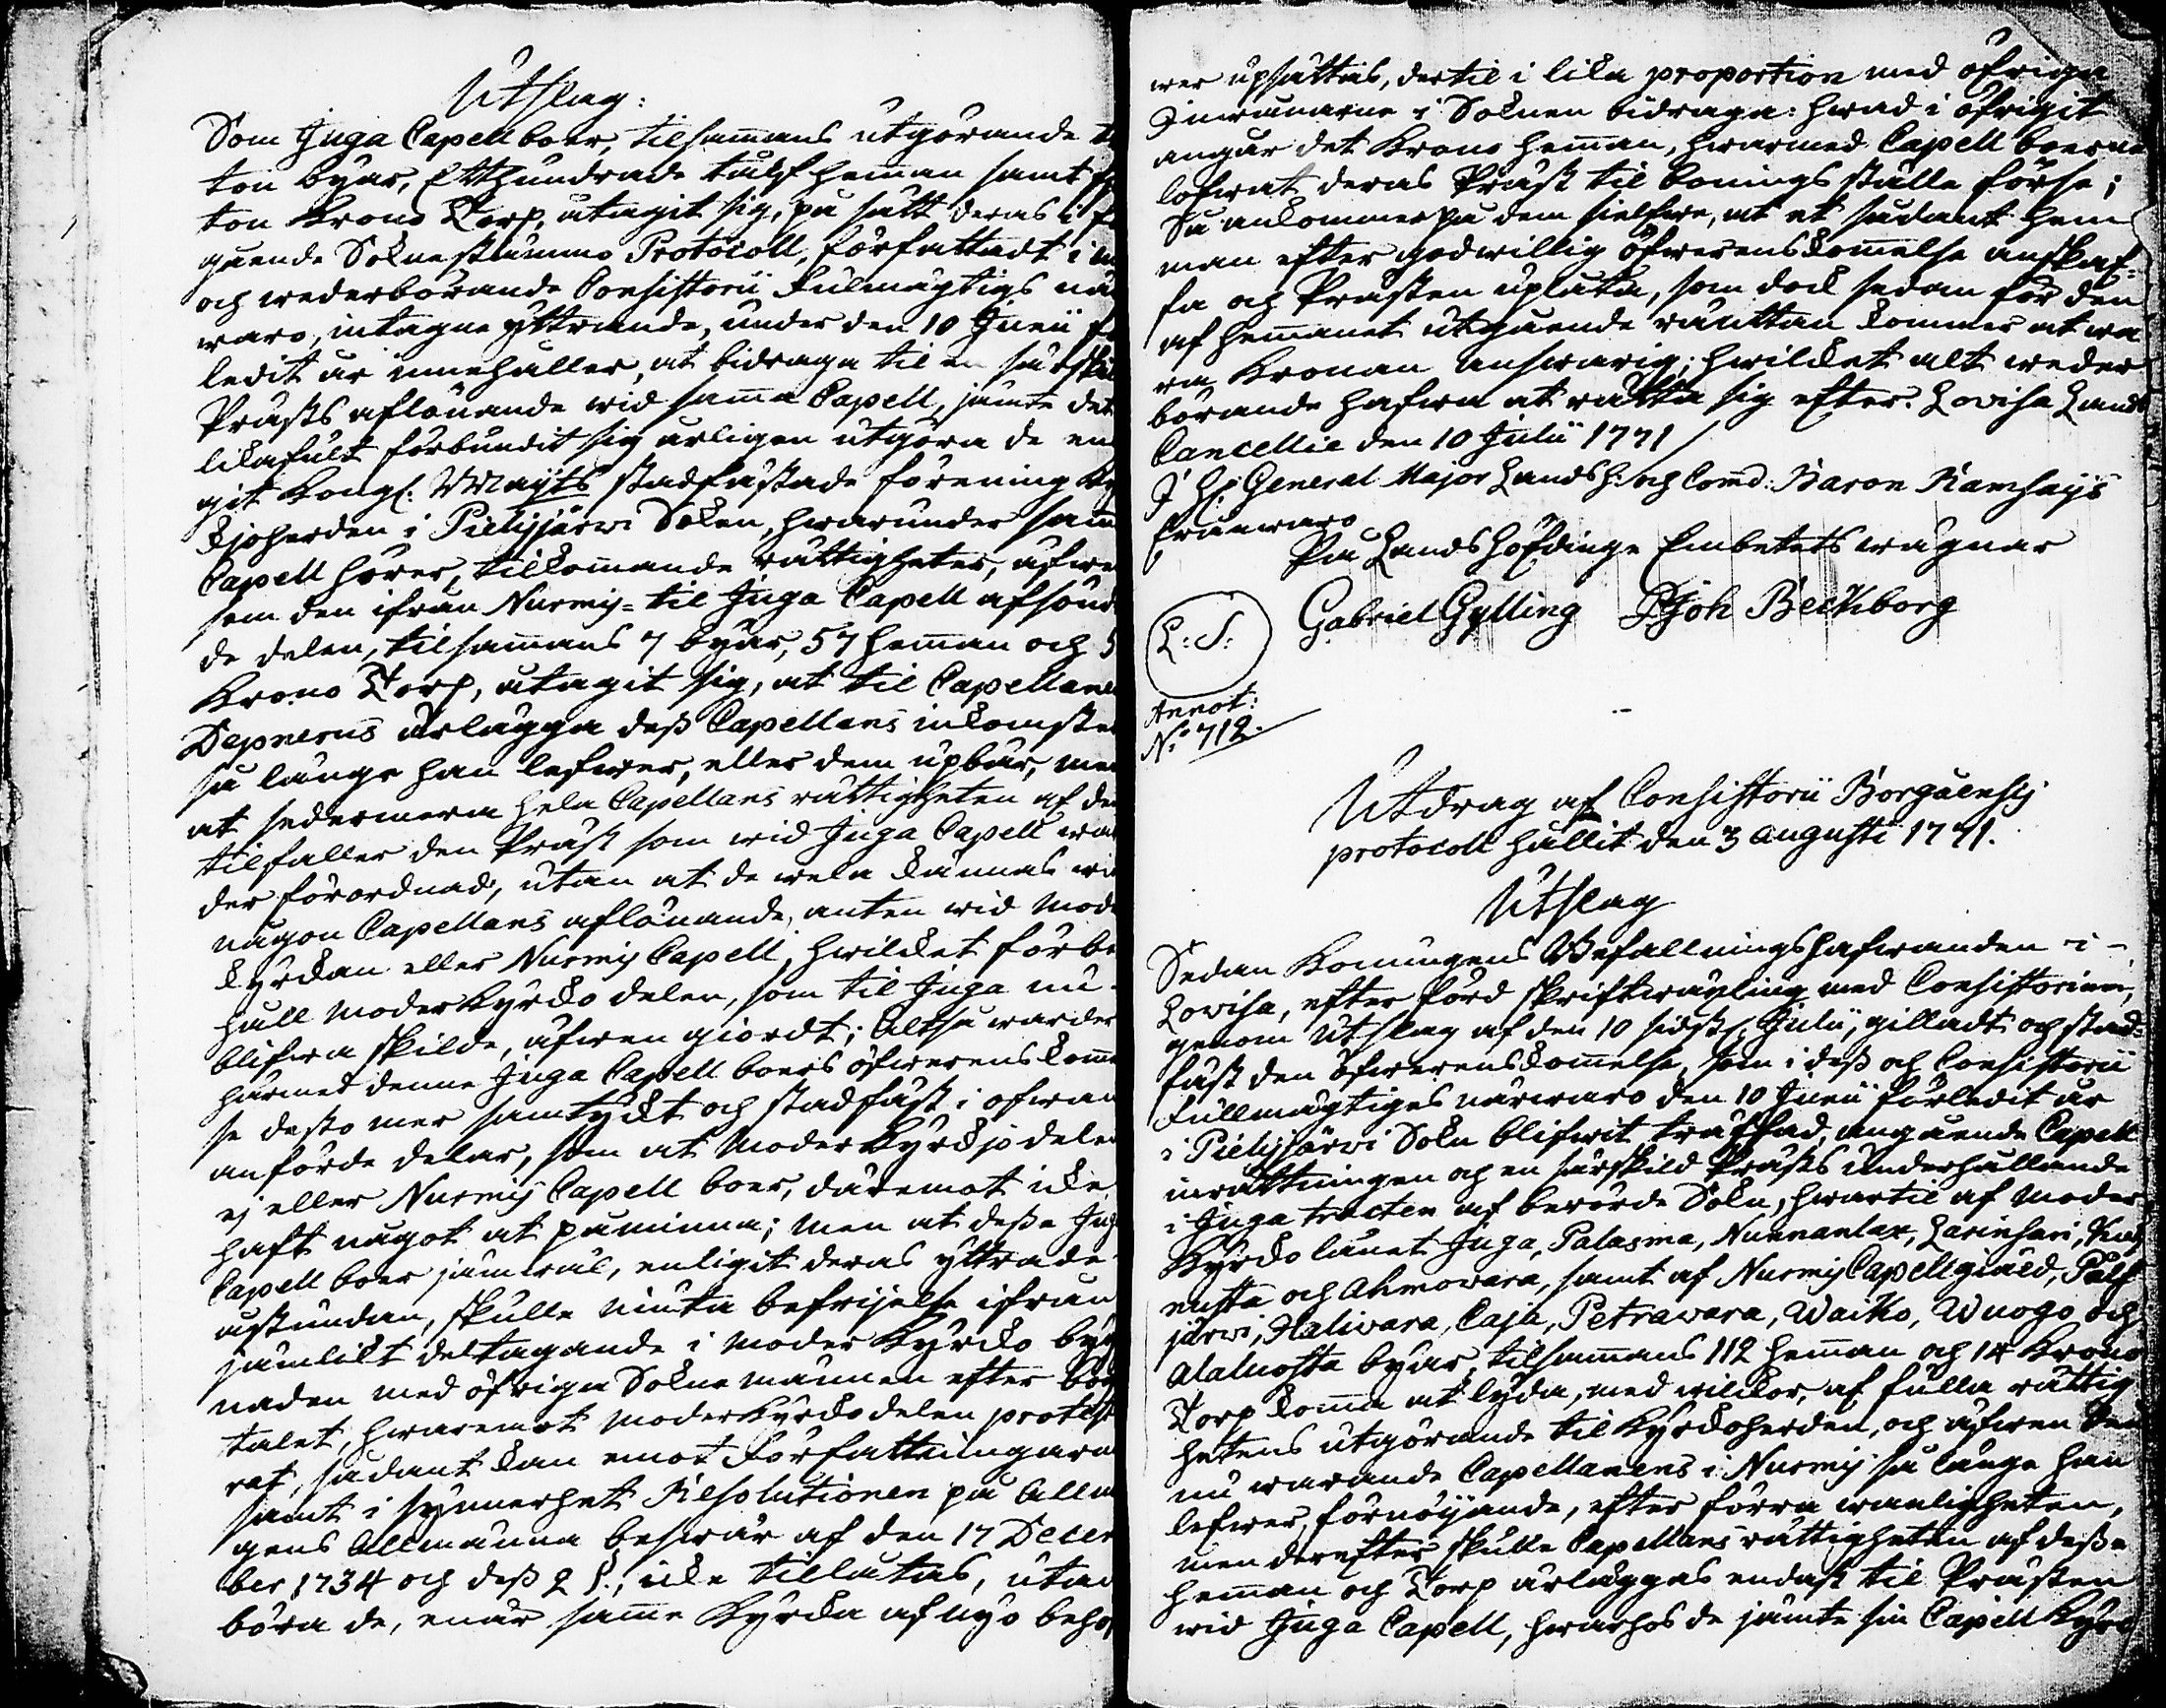 Utslag:
Som Juga Capell boer, tilsammans utgörande
ton byar, Etthundrade tålf hemman samt
ton Krono Torp, åtagit sig, på sätt deras i
gaende Soknestämmo Protocoll, författadt i
och wederbörande Consistorii Fulmägtigs när
waro, intagne yttrande, under den 10 Junii
ledit år innehåller, at bidraga til en särskild
Prästs aflönande wid samma Capell, jämte det
likafult förbundit sig årligen utgöra de en
git Kongl: Maÿts stadfästade förening Kyr
kjoherden i Pielisjärwi Sokn, hwarunder samma
Capell hörer, tilkommande rättigheter, äfwen
som den ifrån Nurmis- til Juga Capell afsönd
de delen, tilsammans 7 byar, 57 hemman och 5
Krono Torp, åtagit sig, at til Capellanen
Depnerus ärlägga dess Capellans inkomster
så länge han lefwer, eller dem upbär, men
at sedermera hela Capellans rättigheten af dem
tilfaller den Präst som wid Juga Capell war
der förordnad, utan at de wela kännas wid
någon Capellans aflönande, anten wid Moder
kyrkan eller Nurmis Capell, hwilket förbe
håll Moderkyrko delen, som til Juga nu
blifwa skilde, äfwen giordt; Altså warder
härmed denne Juga Capell boers öfwerenskomme
se desto mer samtyckt och stadfäst i ofwan
anförde delar, som at Moder Kyrkjo delen
ej eller Nurmis Capell boer, däremot icke
haft något at påminna; men at desse Juga
Capell boer jämwäl, enligit deras yttrade
åstundan, skulle niuta befrijelse ifrån
jämlikt deltagande i Moder Kyrko byg
naden med öfriga Soknemännen efter
talet, hwaremot Moderkyrkodelen proteste
rat, sådant kan emot Författningarne
samt i synnerhet Resolutionen på Allmo
gens Allmänna beswär af den 17 Decem
ber 1734 och dess 2 §., icke tillåtas, utan
böra de, enär samme Kyrka af nyo behöf
wer upsättas, dertil i lika proportion med öfriga
Inwånarne i Soknen bidraga: hwad i öfrigit
angår det Krono hemman, hwarmed Capell boerne
lofwat deras Präst til boningsställe förse;
Så ankommer på dem sielfwe, at et sådant hem
man efter godwillig öfwerenskommelse anskaf-
fa och Prästen uplåta, som dock sedan för den
af hemmanet utgående räntan kommer at wa
ra Kronan answarig; hwilcket alt weder
börande hafwa at rätta sig efter. Lovisa Lands
Cancellie den 10 Julii 1771
I Hr General Major Landsh: och Comd: Baron Ramsays
frånwaro
På Landshöfdinge Embetets wägnar
Gabriel Gylling Joh Beckborg
L: S:
Annot:
No 712.
Utdrag af Consistorii Borgåensis
protocoll hållit den 3 Augusti 1771.
Utslag
Sedan Konungens Befallningshafwanden i
Lovisa, efter förd skriftwäxling med Consistorium,
genom Utslag af den 10 sidstl. Julii, gilladt och stad-
fäst den öfwerenskommelse, som i dess och Consistorii
Fullmägtiges närwaro den 10 Junii förledit år
i Pielisjärvi Sokn blifwit träffad, angående Capell
inrättningen och en särskild Prästs underhållande
i Juga tracten af berörde Sokn, hwartil af Moder
Kyrko länet Juga, Palasma, Nunnanlax, Larinsari,
nusta och Ahmowara, samt af Nurmis Capellgiäld, Pålf
järwi, Haliwara, Caja, Petrawara, Waikko, Wuogo och
Alaluosta byar, tilsammans 112 hemman och 14 Krono
Torp komma at lyda, med wilckor, af fulla rättig
hetens utgörande til Kyrkoherden, och äfwen
nu warande Capellanens i Nurmis så länge han
lefwer, förnöijande, efter förra wanligheten,
men derefter skulle Capellans rättigheten af desse
hemman och Torp ärläggas endast til Prästen
wid Juga Capell, hwarhos de jämte sin Capell Kyrc